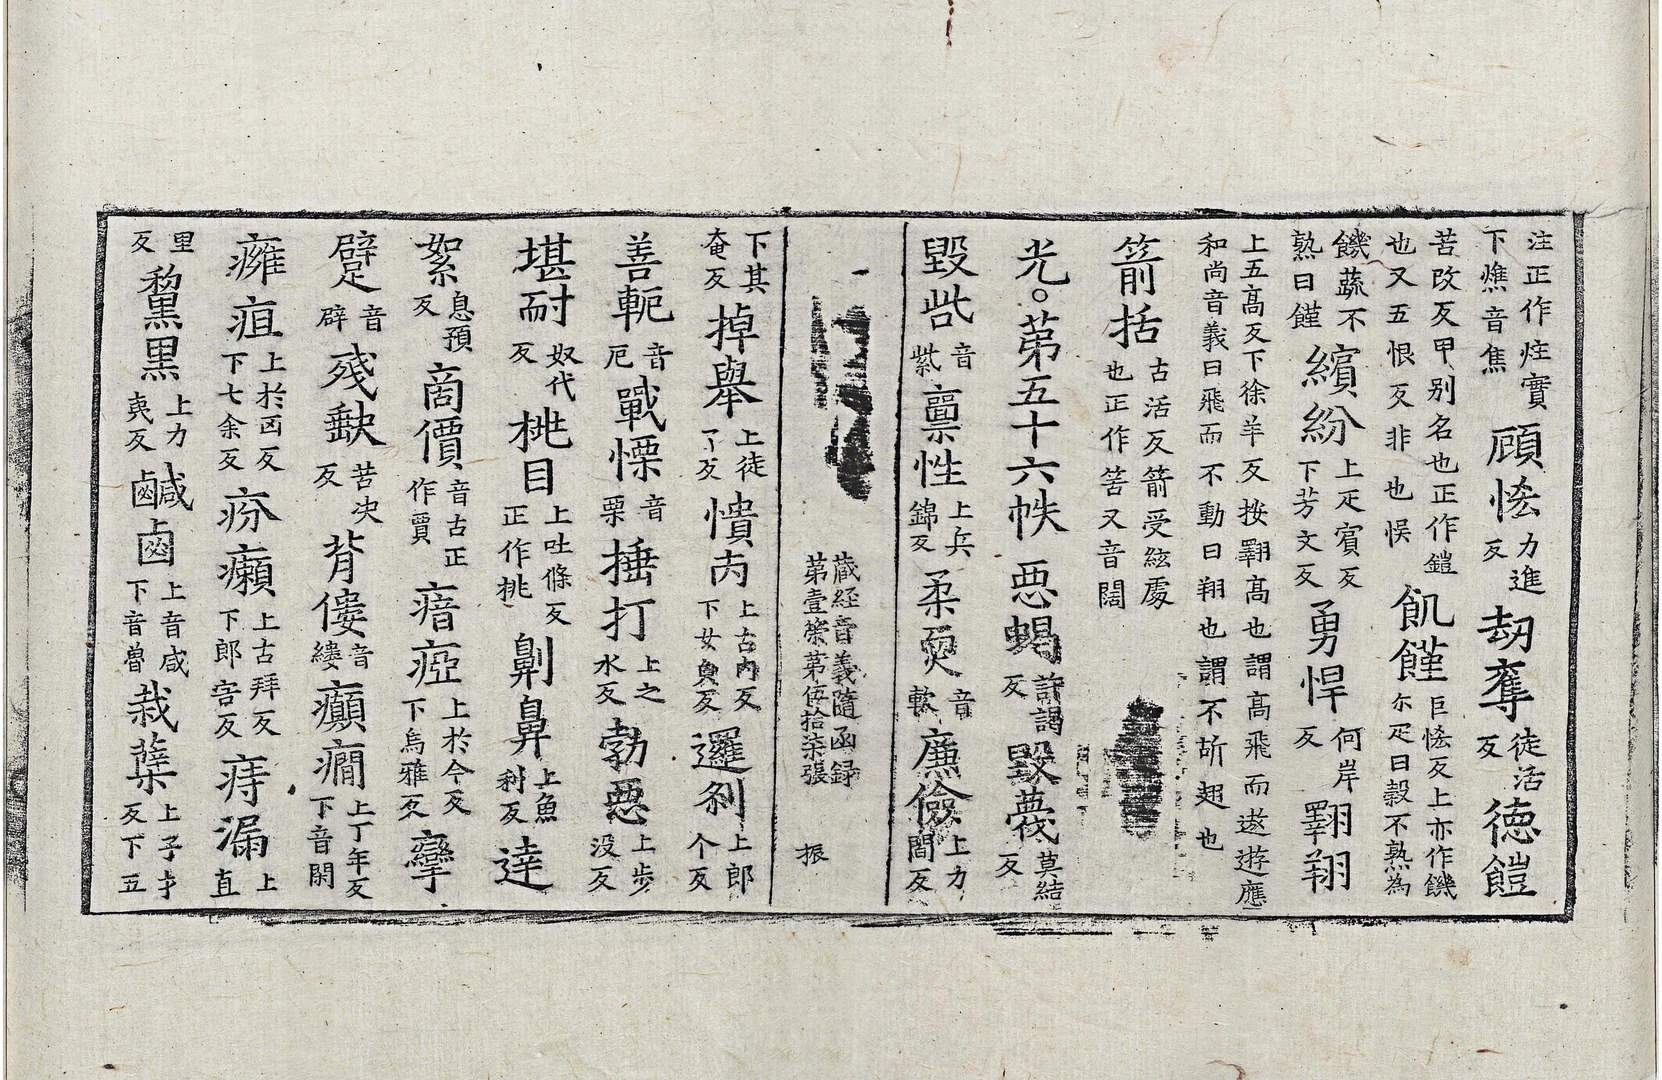 注正作炷實下燋音焦 頋悋力進反 刼奪徒活反 徳饐
苦改反甲别名也正作鎧也又五恨反非也悮 飢饉巨悋反上亦作饑尓疋曰穀不熟為
饑蔬不熟曰饉 繽紛上疋賔反下芳文反 勇悍何岸反 翺翔
上五髙反下徐羊反按翺髙也謂髙飛而遨遊應和尚音義曰飛而不動曰翔也謂不斫翅也
箭括古活反箭受絃處也正作筈又音闊
光。苐五十六帙 惡蝎許謁反 毀蔑莫結反
毀呰音紫 禀性上兵錦反 柔耎音軟 廉儉上力閻反
藏経音義隨函録
第壹策第伍拾柒張 振
下其奄反 掉舉上徒了反 憒丙上古内反下女㚟反 邏刹上郎个反
善軛音厄 戰慄音栗 捶打上之水反 勃惡上步没反
堪耐奴代反 桃目上吐條反正作挑 劓鼻上魚利反 達
絮息預反 商價音古正作賈 瘖瘂上於今反下烏雅反 攣
躄音辟 殘缺苦决反 背僂音縷 癲癇上丁年反下音閑
癰疽上於凶反下七余反 疥癩上古拜反下郎害反 痔漏上直
里反 黧黒上力夷反 鹹鹵上音咸下音魯 栽蘖上子才反下五